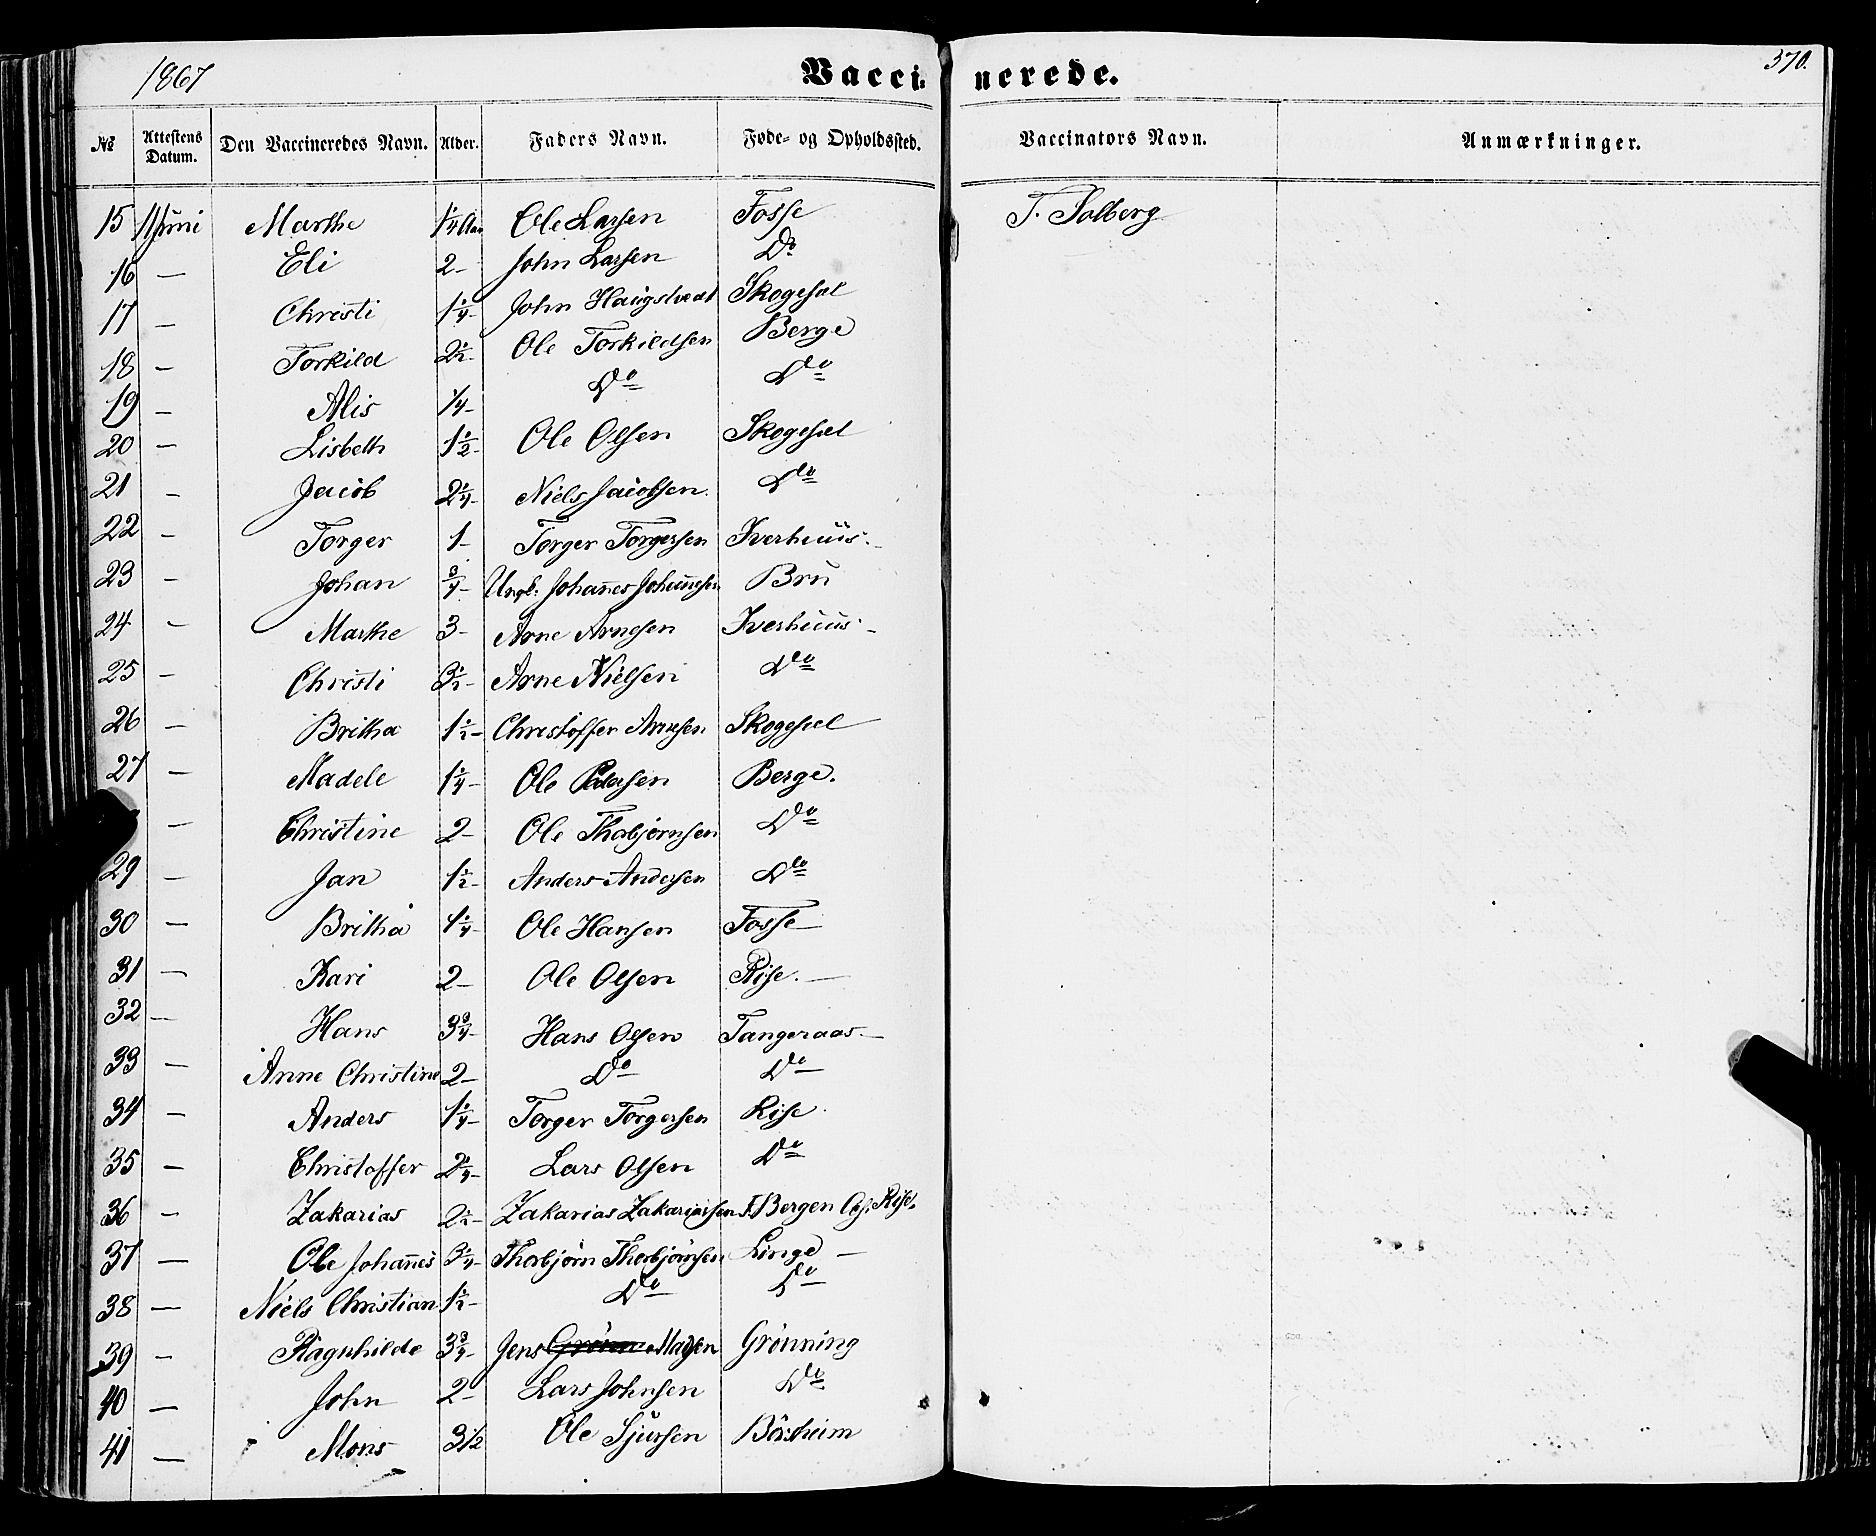 1867 Vacci- nerede. 370.
No Attestens Datum. Den Vaccineredes Navn. Alder. Faders Navn. Føde- og Opholdssted. Vaccinators Navn. Anmærkninger.
15 11 Juni Marthe 1/4 Aar Ole Larsen Fosse T. Solberg
16 — Eli 2- John Larsen Do
17 — Christi 1 1/4- John Haugstvedt Skogesæl
18 — Torkild 2 1/2- Ole Torkildsen Berge
19 — Alis 1/4- Do Do
20 — Lisbeth 1 1/2- Ole Olsen Skogesæl
21 — Jacob 2 1/4- Niels Jacobsen. Do
22 — Torger 1- Torger Torgersen Iverhuus.
23 — Johan 3/4- Ungk: Johannes Johannesen Bru
24 — Marthe 3- Arne Arnesen Iverhuus-
25 — Christi 3 1/2- Arne Nielsen Do
26 — Britha 1 1/2- Christoffer Arnesen Skogesæl
27 — Madele 1 1/4- Ole Pedersen Berge.
— Christine 2- Ole Thorbjørnsen Do
29 — Jan 1 1/2- Anders Andersen Do
30 — Britha 1 1/4- Ole Hansen Fosse—
31 — Kari 2- Ole Olsen Rise.—
32 — Hans 3 3/4- Hans Olsen Tangeraas—
33 — Anne Christine 2- Do Do
34 — Anders 1 1/4- Torger Torgersen Rise
35 — Christoffer 2 1/4- Lars Olsen Do
36 — Zakarias 2 1/2- Zakarias Zakariasen F. Bergen Op. Rise.
37 — Ole Johannes 3 1/4- Thorbjørn Thorbjørnsen Linge —
38 — Niels Christian 1 1/2- Do Do
39 — Ragnhilde 3 3/4- Jens Madsen Grønning
40 — John 2- Lars Johnsen Do
41 — Mons 3 1/2 Ole Sjursen Børsheim